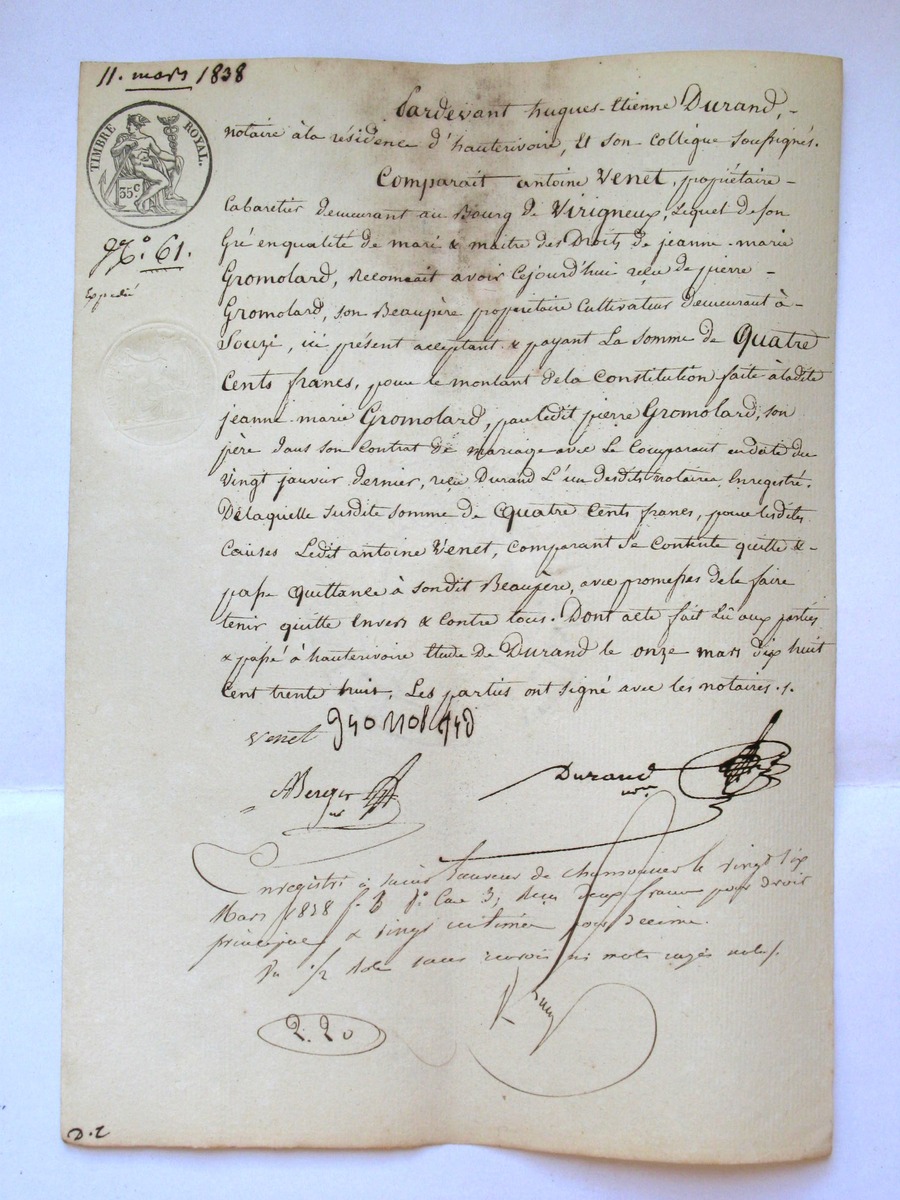 11. mars 1838
TIMBRE ROYAL.
35 c
N.o 61.
Expédié
Pardevant hugues-Etienne Durand,
notaire à la résidence d'hauterivoire, & son collègue soussignés.
Comparait antoine Venet, propiétaire
Cabaretier demeurant au Bourg de Virigneux, lequel de son
Gré en qualité de mari & maitre des Droits de jeanne-marie
Gromolard, reconnait avoir Cejourd'hui reçu de pierre
Gromolard, son Beaupère propriétaire Cultivateur demeurant à
Souzi, ici présent acceptant & payant La somme de Quatre
Cents francs, pour le montant de la Constitution faite à ladite
jeanne-marie Gromolard, par ledit pierre Gromolard, son
père dans son Contrat de mariage avec Le Comparant en date du
Vingt janvier dernier, reçu Durand L'un desdits notaires, Enregistré.
De laquelle susdite somme de Quatre Cents francs, pour lesdites
Causes Ledit antoine Venet, comparant se Contente quitte &
passe Quittance à sondit Beaupère, avec promesses de le faire
tenir quitte Envers & Contre tous. Dont acte fait Lû aux parties
& passé à hauterivoire Etude De Durand le onze mars dix huit
Cent trente huit, Les parties ont signé avec les notaires.
Venet gromolard
ABerger Durand
nre
Enregistré à saint Sauveur de chamousset le vingt six
Mars 1838 f. 3 Case 3, reçu deux francs pour droit
principal & vingt centimes pour décime.
sans renvoi ni mots rayés nuls.
2. 20
D.E